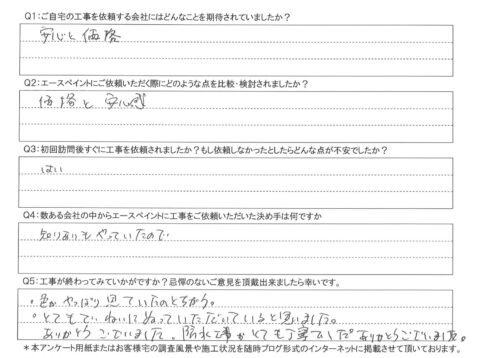 Q1：ご自宅の工事を依頼する会社にはどんなことを期待されていましたか？
安心と価格
Q2：エースペイントにご依頼いただく際にどのような点を比較・検討されましたか？
価格と安心感
Q3：初回訪問後すぐに工事を依頼されましたか？もし依頼しなかったとしたらどんな点が不安でしたか？
はい
Q4：数ある会社の中からエースペイントに工事をご依頼いただいた決め手は何ですか
知りあいもやっていたので
Q5：工事が終わってみていかがですか？忌憚のないご意見を頂戴出来ましたら幸いです。
・色がやっぱり見ていたのとちがう。
・とてもていねいにぬっていただいていると思いました。
ありがとうございました。防水工事がとても丁寧でしたありがとうございました。
＊本アンケート用紙またはお客様宅の調査風景や施工状況を随時ブログ形式のインターネットに掲載させて頂いております。